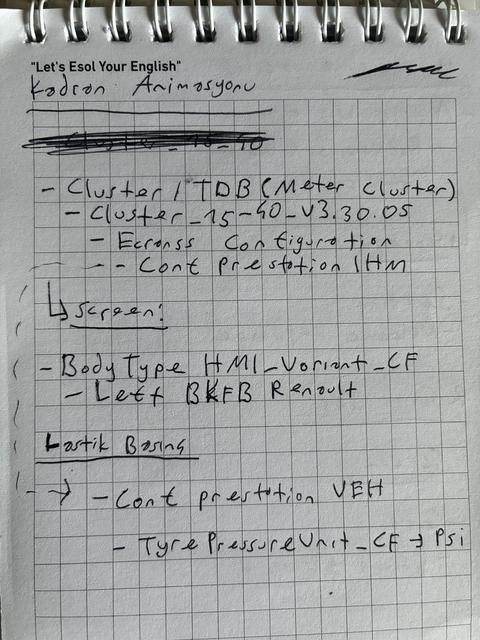 "Let's Esol Your English"
Kadran Animasyonu
- Cluster / TDB (Meter Cluster)
- Cluster_15-40_V3.30.05
- Ecranss Configuration
- - Conf prestation IHM
↳ Screen:
- Body Type HMI_Variant_CF
- Left BKFB Renault
Lastik Basınç
→ - Conf prestation VEH
- TyrePressureUnit_CF → Psi